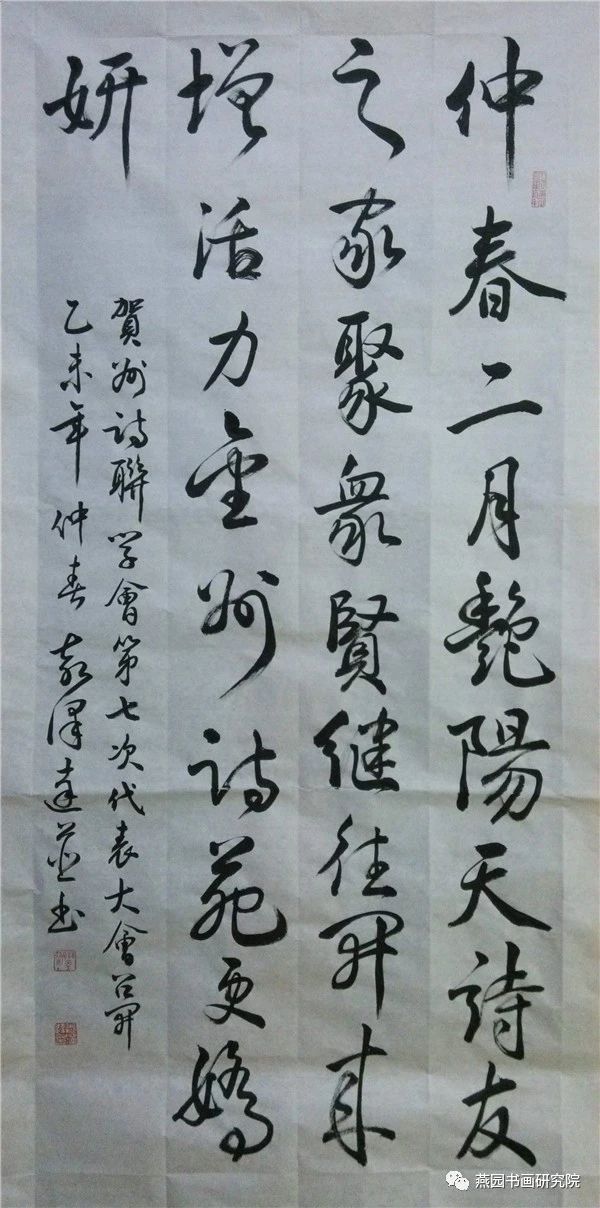 仲春二月艷陽天詩友
之家聚衆賢继往開来
增活力金州诗苑更嬌
妍
賀州诗聯学會第七次代表大會召開
乙未年仲春澤達並书
燕园书画研究院